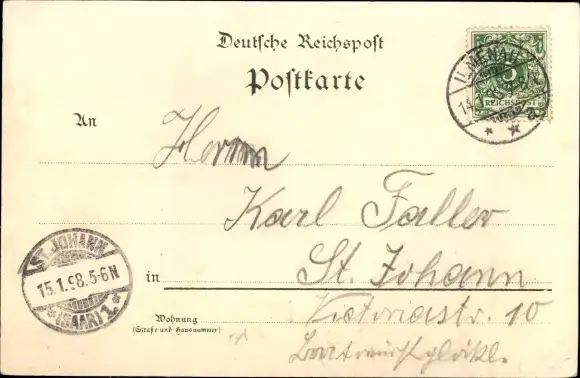 Deutsche Reichspost
Postkarte
ILMENAU
14.1.98
REICHSPOST
An
Herrn
Karl Faller
ST. JOHANN
15.1.98.5-6N
*(SAAR)1.*
in St. Johann
Wohnung
(Straße und Hausnummer)
Victoriastr. 10